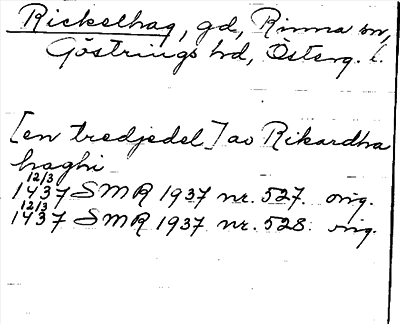 Rickelhag, gd, Rinna sn,
Göstrings hd, Österg. l.
[en tredjedel] av Rikardha
haghi
12/3
1437 SMR 1937 nr. 527. orig.
12/3
1437 SMR 1937 nr. 528. orig.